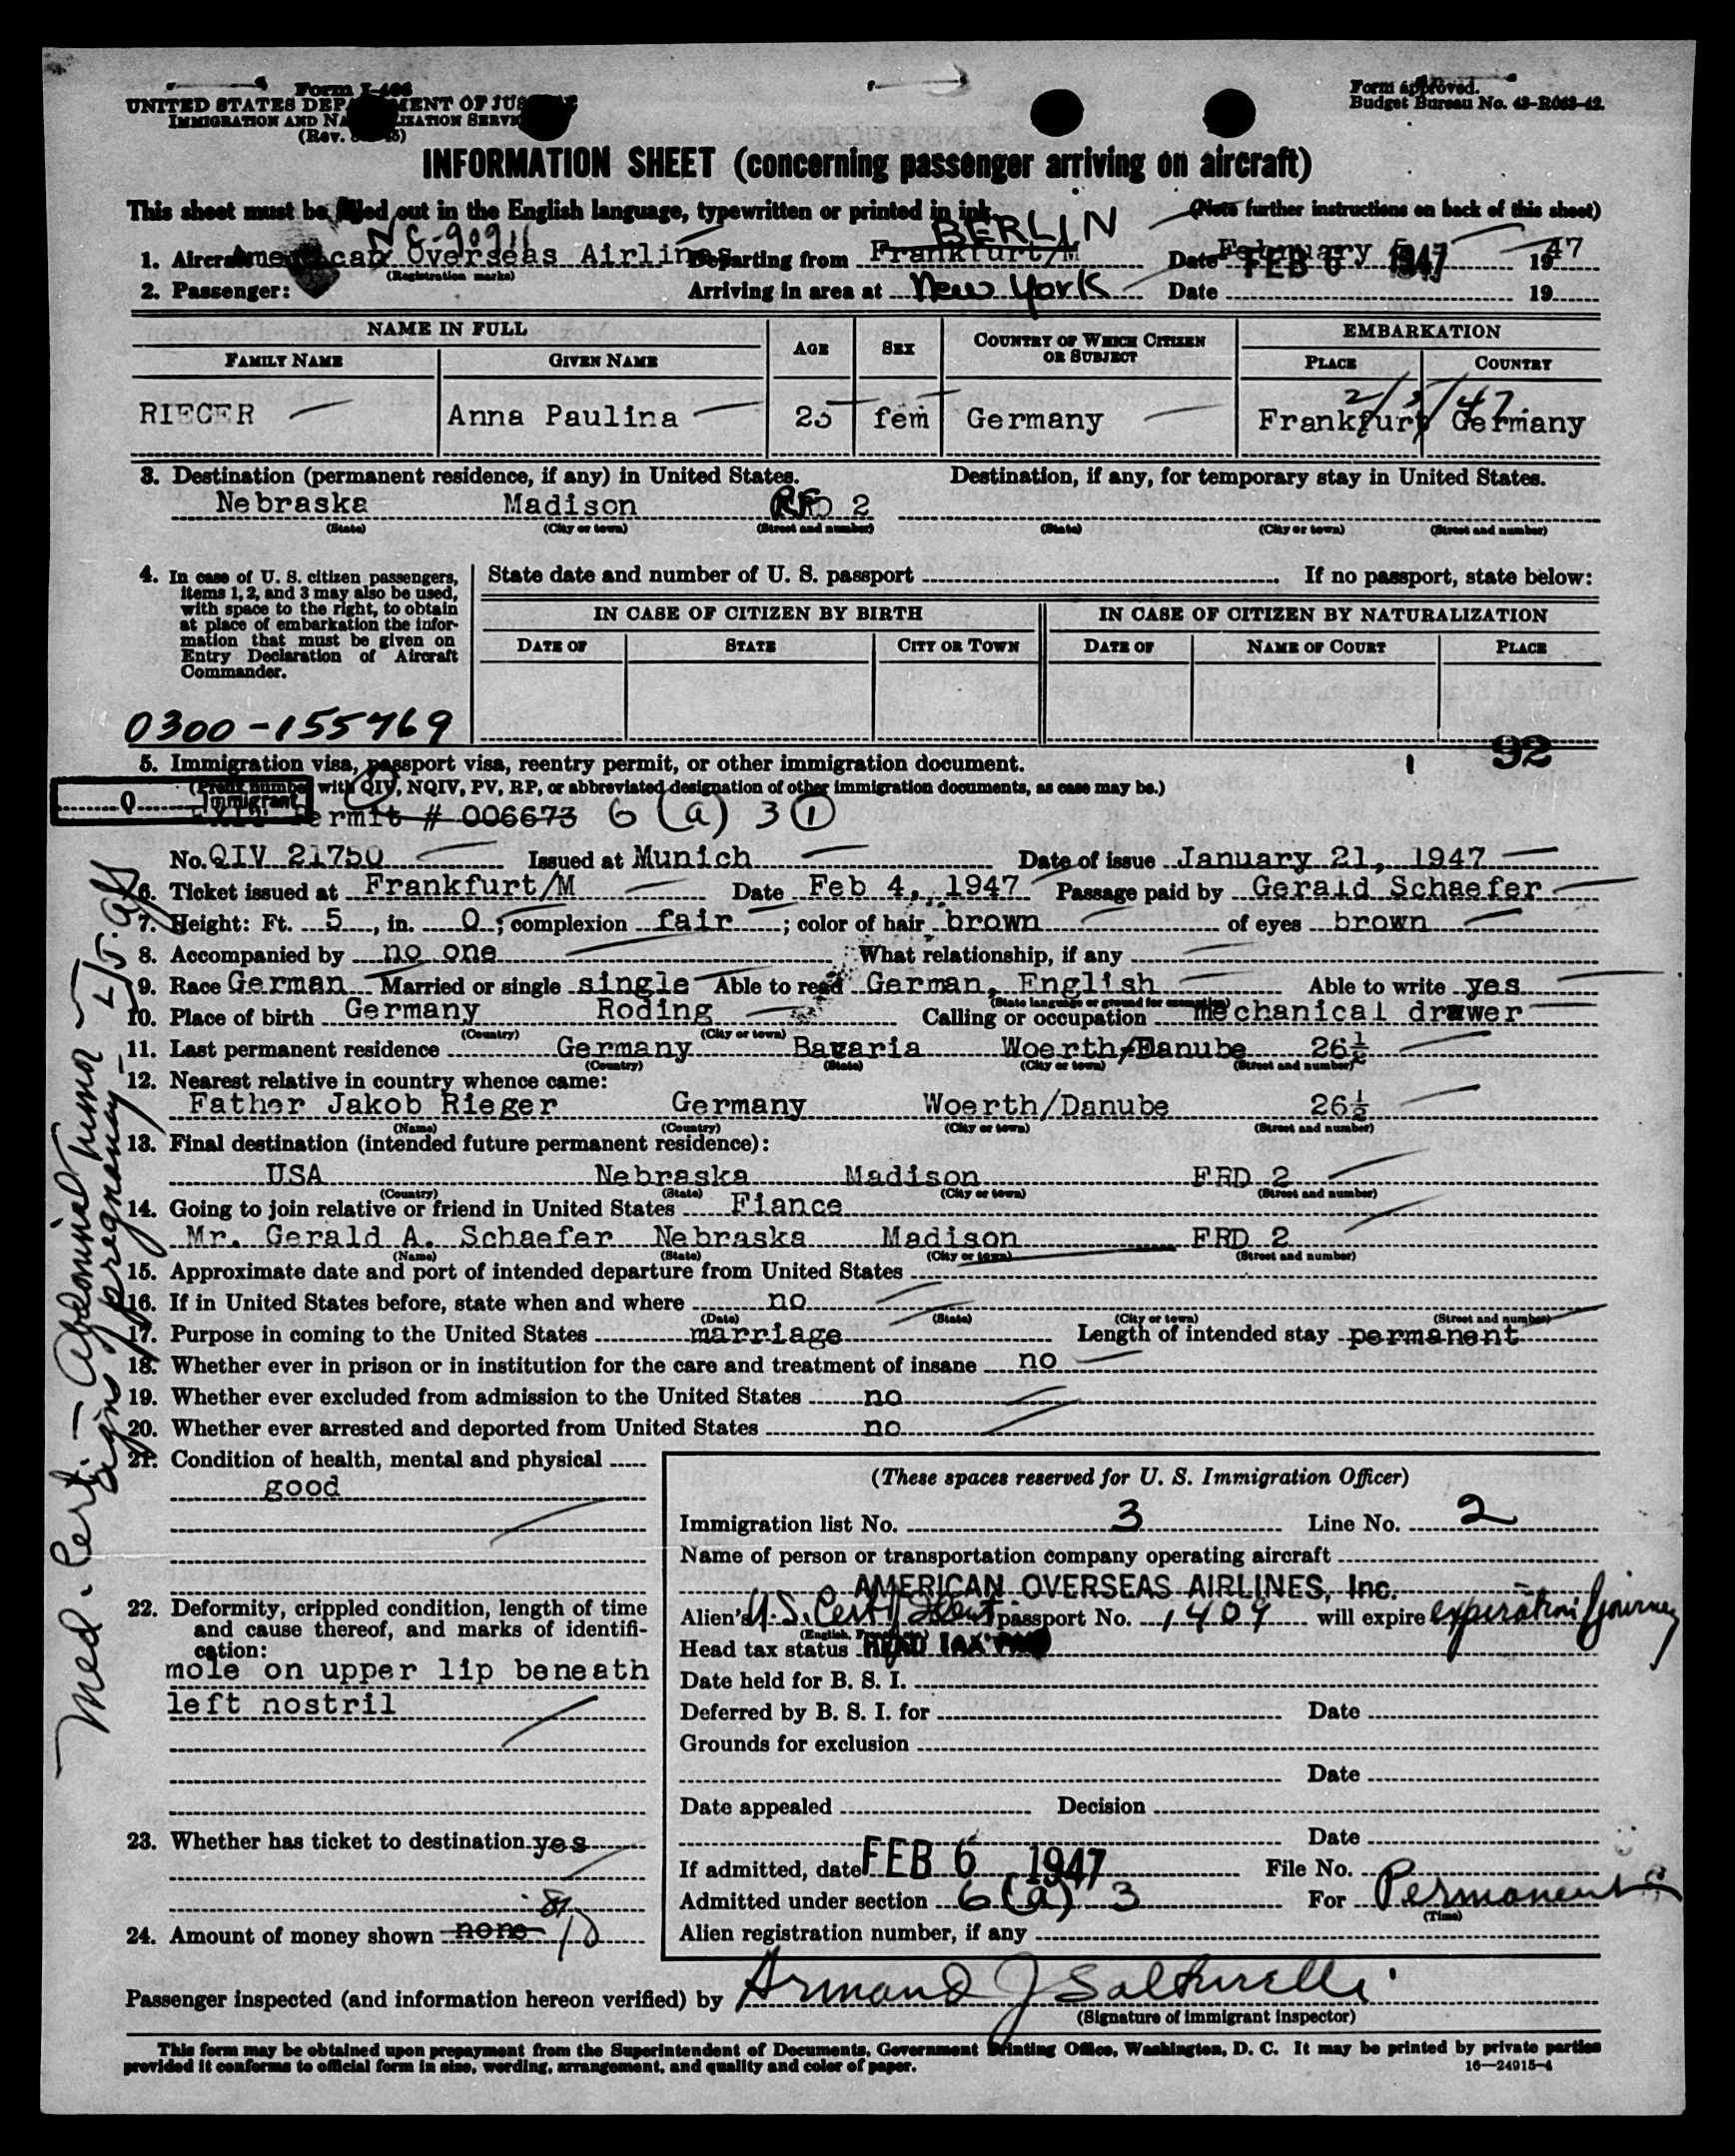 Form I-466
UNITED STATES DEPARTMENT OF JUSTICE
IMMIGRATION AND NATURALIZATION SERVICE
(Rev.
Form approved.
Budget Bureau No. 43-R063-42.
INFORMATION SHEET (concerning passenger arriving on aircraft)
This sheet must be filled out in the English language, typewritten or printed in ink.
(Note further instructions on back of this sheet)
NC-90911 BERLIN
1. Aircraft American Overseas Airlines Departing from Frankfurt/M Date February 5 FEB 6 1947 1947
(Registration marks)
2. Passenger: Arriving in area at New York Date 19
NAME IN FULL AGE SEX COUNTRY OF WHICH CITIZEN OR SUBJECT EMBARKATION
FAMILY NAME GIVEN NAME PLACE COUNTRY
2/5/47
RIEGER Anna Paulina 25 fem Germany Frankfurt Germany
3. Destination (permanent residence, if any) in United States. Destination, if any, for temporary stay in United States.
Nebraska Madison 2
(State) (City or town) (Street and number) (State) (City or town) (Street and number)
4. In case of U. S. citizen passengers, items 1, 2, and 3 may also be used, with space to the right, to obtain at place of embarkation the information that must be given on Entry Declaration of Aircraft Commander.
State date and number of U. S. passport If no passport, state below:
IN CASE OF CITIZEN BY BIRTH IN CASE OF CITIZEN BY NATURALIZATION
DATE OF STATE CITY OR TOWN DATE OF NAME OF COURT PLACE
0300-155769
1 92
5. Immigration visa, passport visa, reentry permit, or other immigration document.
(Prefix number with QIV, NQIV, PV, RP, or abbreviated designation of other immigration documents, as case may be.)
Q Immigrant
Permit # 006673 6 (a) 3 1
No. QIV 21750 Issued at Munich Date of issue January 21, 1947
6. Ticket issued at Frankfurt/M Date Feb 4, 1947 Passage paid by Gerald Schaefer
7. Height: Ft. 5, in. 0; complexion fair; color of hair brown of eyes brown
8. Accompanied by no one What relationship, if any
9. Race German Married or single single Able to read German, English Able to write yes
(State language or ground for exemption)
10. Place of birth Germany Roding Calling or occupation mechanical drawer
(Country) (City or town)
11. Last permanent residence Germany Bavaria Woerth/Danube 26½
(Country) (State) (City or town) (Street and number)
12. Nearest relative in country whence came:
Father Jakob Rieger Germany Woerth/Danube 26½
(Name) (Country) (City or town) (Street and number)
13. Final destination (intended future permanent residence):
USA Nebraska Madison FRD 2
(Country) (State) (City or town) (Street and number)
14. Going to join relative or friend in United States Fiance
Mr. Gerald A. Schaefer Nebraska Madison FRD 2
(Name) (State) (City or town) (Street and number)
15. Approximate date and port of intended departure from United States
16. If in United States before, state when and where no
(Date) (State) (City or town) (Street and number)
17. Purpose in coming to the United States marriage Length of intended stay permanent
18. Whether ever in prison or in institution for the care and treatment of insane no
19. Whether ever excluded from admission to the United States no
20. Whether ever arrested and deported from United States no
21. Condition of health, mental and physical
good
22. Deformity, crippled condition, length of time and cause thereof, and marks of identification:
mole on upper lip beneath
left nostril
23. Whether has ticket to destination yes
24. Amount of money shown none 10
Med. Cert. - Abdominal Tumor -
Signs pregnancy -
(These spaces reserved for U. S. Immigration Officer)
Immigration list No. 3 Line No. 2
Name of person or transportation company operating aircraft
AMERICAN OVERSEAS AIRLINES, Inc.
Alien's U.S. Cert of Ident passport No. 1409 will expire expiration journey
Head tax status HEAD TAX PAID
Date held for B. S. I.
Deferred by B. S. I. for Date
Grounds for exclusion
Date
Date appealed Decision
Date
If admitted, date FEB 6 1947 File No.
Admitted under section 6(a) 3 For Permanent
(Time)
Alien registration number, if any
Passenger inspected (and information hereon verified) by Armand J
(Signature of immigrant inspector)
This form may be obtained upon prepayment from the Superintendent of Documents, Government Printing Office, Washington, D. C. It may be printed by private parties
provided it conforms to official form in size, wording, arrangement, and quality and color of paper.
16—24915-4